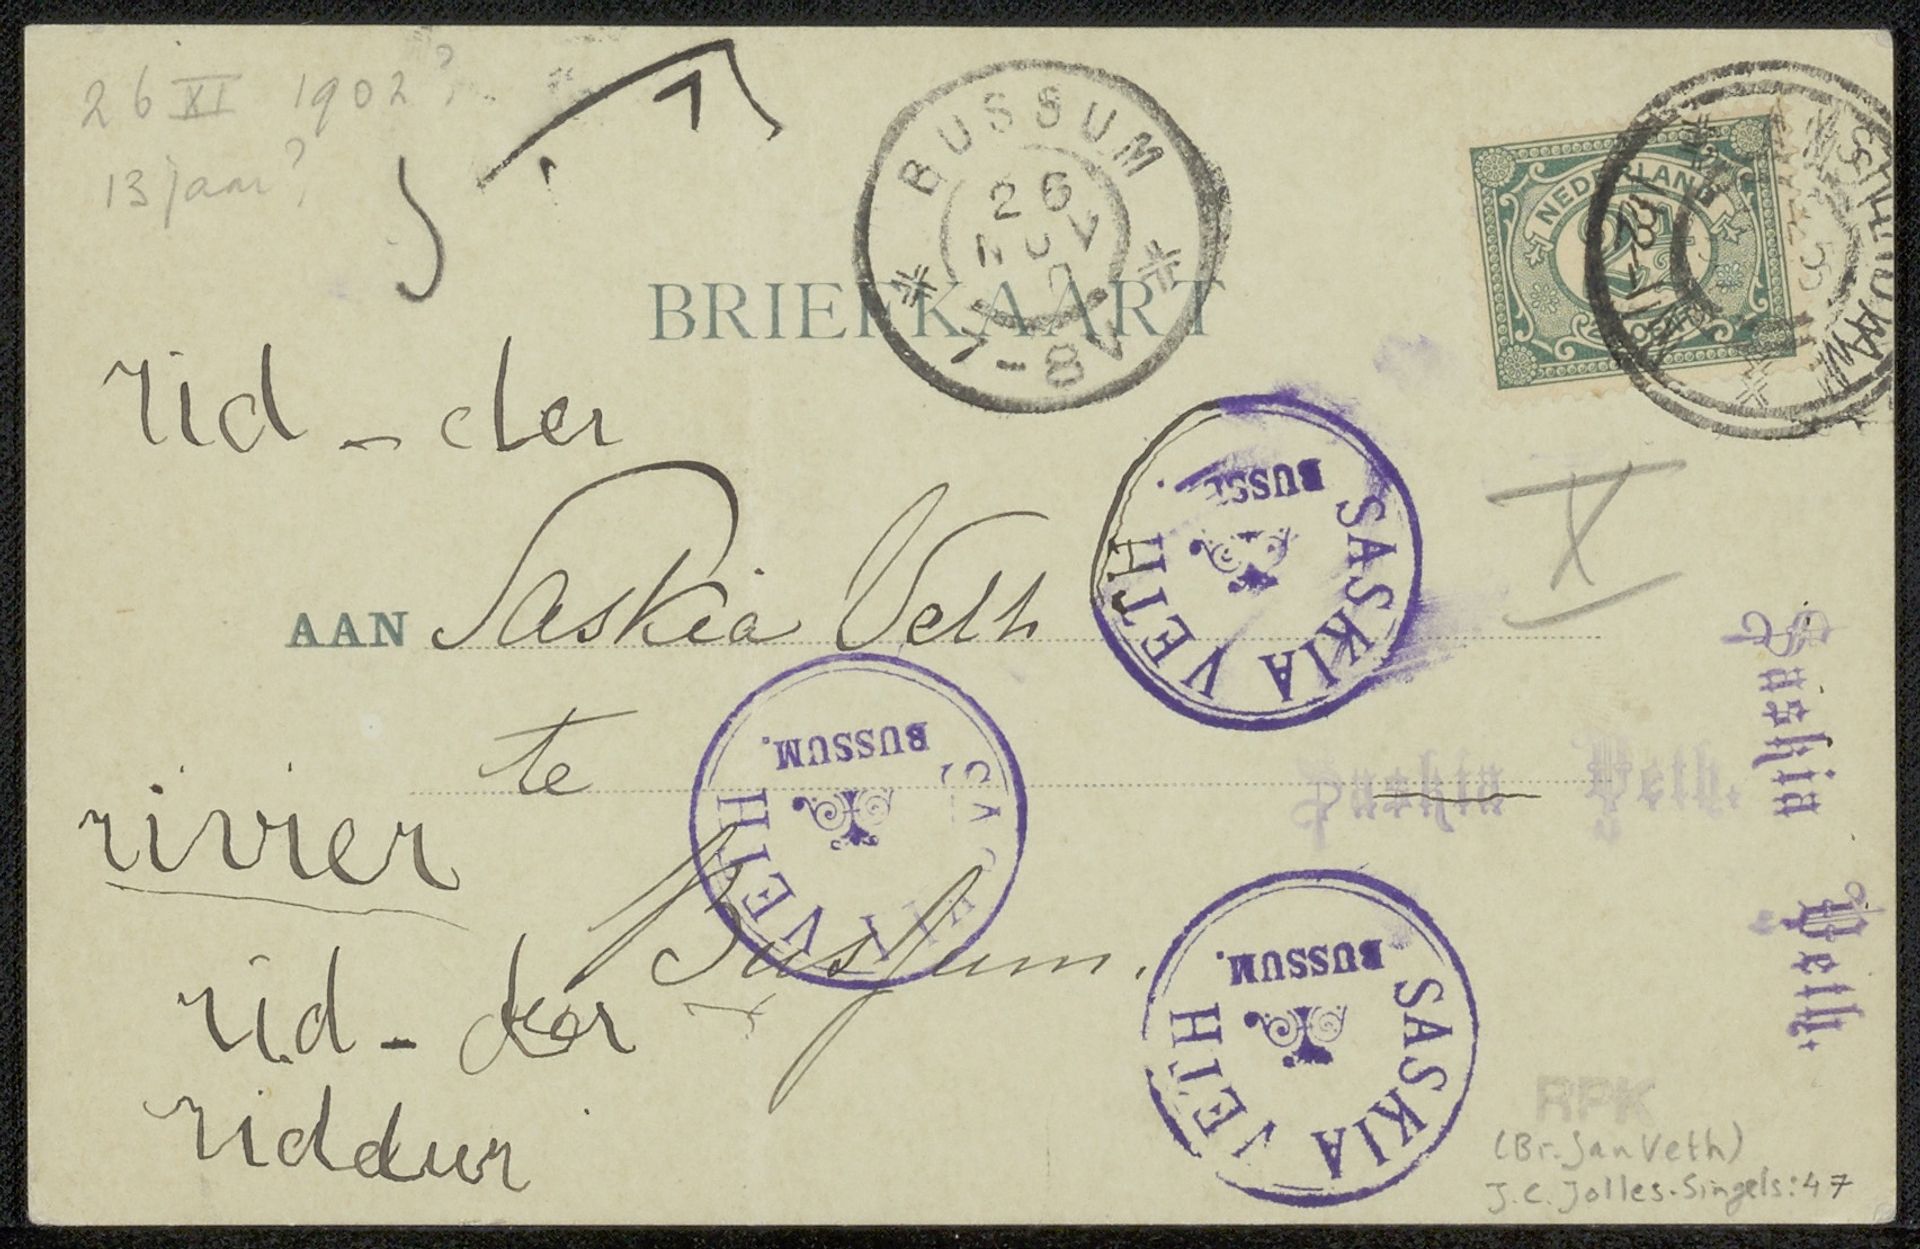 26 XI 1902?
13 jaar?
BUSSUM
26
NOV
7-8V
BRIEFKAART
NEDERLAND
2½
rid-der
AAN Saskia Veth
SASKIA VETH
BUSSUM.
X
te
SASKIA VETH
BUSSUM.
Saskia Veth.
Saskia Veth.
rivier
Bussum.
rid-der
SASKIA VETH
BUSSUM.
riddur
RPK
(Br. Jan Veth)
J.C. Jolles-Singels: 47